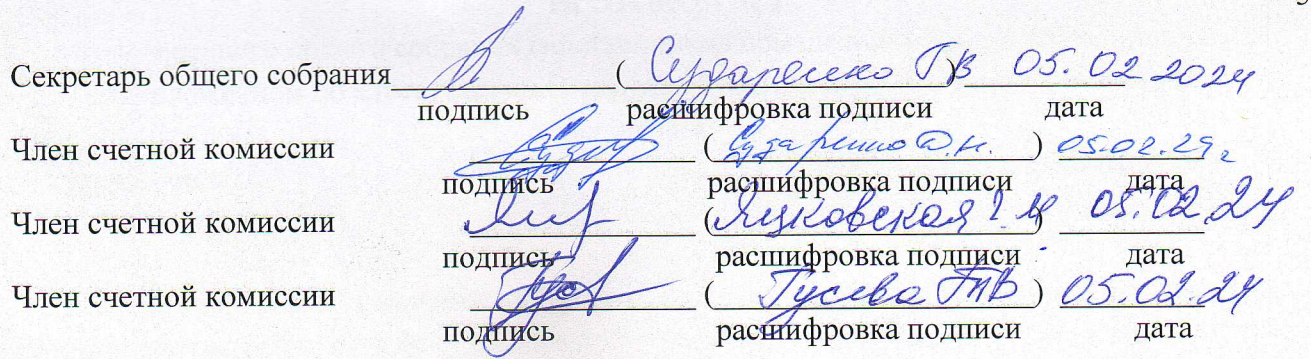 Секретарь общего собрания (Сударенко ГВ) 05.02 2024
подпись расшифровка подписи дата
Член счетной комиссии (Сударенко Д.Н.) 05.02.24г
подпись расшифровка подписи дата
Член счетной комиссии (Яцковская Г.М) 05.02.24
подпись расшифровка подписи дата
Член счетной комиссии (Гусева ТВ) 05.02.24
подпись расшифровка подписи дата